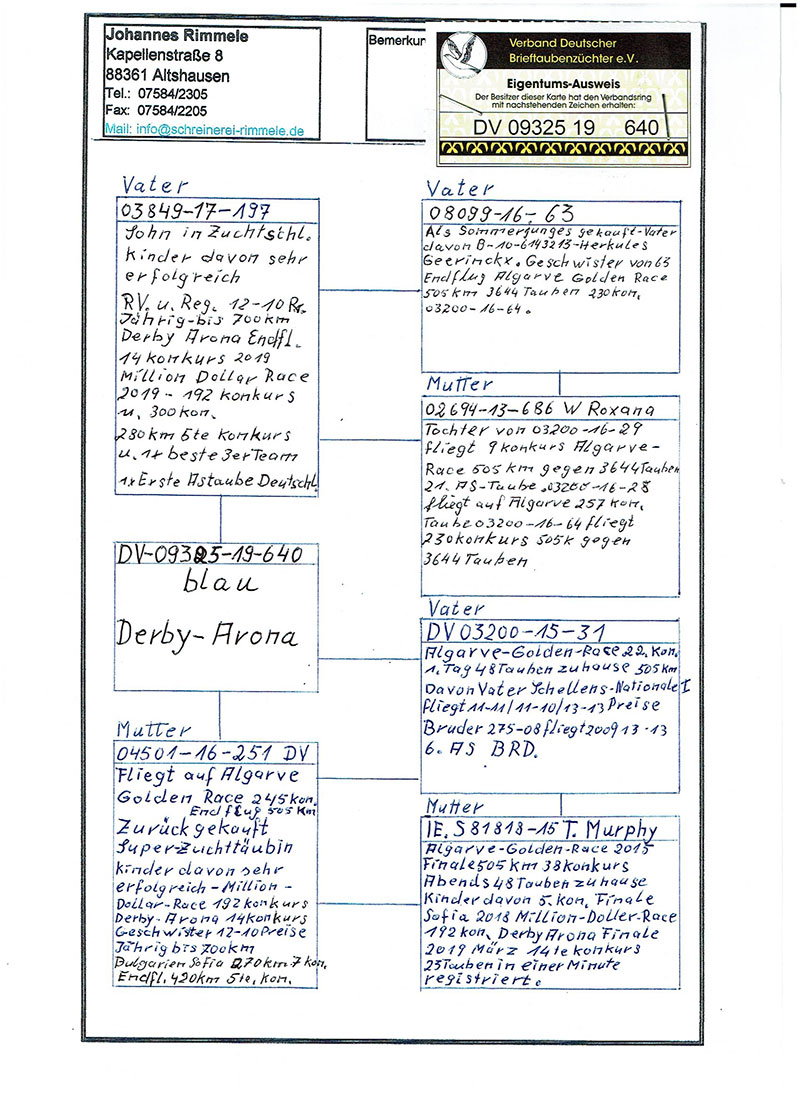 Johannes Rimmele
Kapellenstraße 8
88361 Altshausen
Tel.: 07584/2305
Fax: 07584/2205
Mail: info@schreinerei-rimmele.de
Bemerkun
Verband Deutscher
Brieftaubenzüchter e.V.
Eigentums-Ausweis
Der Besitzer dieser Karte hat den Verbandsring
mit nachstehenden Zeichen erhalten:
DV 09325 19 640
Vater
03849-17-197
Sohn in Zuchtsthl.
Kinder davon sehr
erfolgreich
RV. u. Reg. 12-10 Pr.
Jährig-bis 700km
Derby Arona Endfl.
14 konkurs 2019
Million Dollar Race
2019- 192 konkurs
u. 300 kon.
280 km 5te Konkurs
u. 1x beste 3er Team
1x Erste Astaube Deutschl.
DV-09325-19-640
blau
Derby-Arona
Mutter
04501-16-251 DV
Fliegt auf Algarve
Golden Race 245 kon.
Endflug 505 Km
Zurück gekauft
Super-Zuchttäubin
Kinder davon sehr
erfolgreich - Million -
Dollar-Race 192 konkurs
Derby-Arona 14 konkurs
Geschwister 12-10 Preise
Jährig bis 700km
Bulgarien Sofia 270 km 7 kon.
Endfl. 420km 5te. kon.
Vater
08099-16-63
Als Sommerjunges gekauft-Vater
davon B-10-6143213-Herkules
Geerinckx. Geschwister von 63
Endflug Algarve Golden Race
505 km 3644 Tauben 230 kon.
03200-16-64.
Mutter
02694-13-686 W Roxana
Tochter von 03200-16-29
fliegt 9 konkurs Algarve-
Race 505 km gegen 3644 Tauben
21. AS-Taube .03200-16-28
fliegt auf Algarve 257 kon.
Taube 03200-16-64 fliegt
230 konkurs 505k gegen
3644 Tauben
Vater
DV 03200-15-31
Algarve-Golden-Race 22. Kon.
1. Tag 48 Tauben zuhause 505 km
Davon Vater Schellens-Nationale I
fliegt 11-11/11-10/13-13 Preise
Bruder 275-08 fliegt 2009 13-13
6. AS BRD.
Mutter
IE. S 81818-15 T. Murphy
Algarve-Golden-Race 2015
Finale 505 km 38 konkurs
Abends 48 Tauben zuhause
Kinder davon 5. kon. Finale
Sofia 2018 Million-Doller-Race
192 kon. Derby Arona Finale
2019 März 14te konkurs
25 Tauben in einer Minute
registriert.